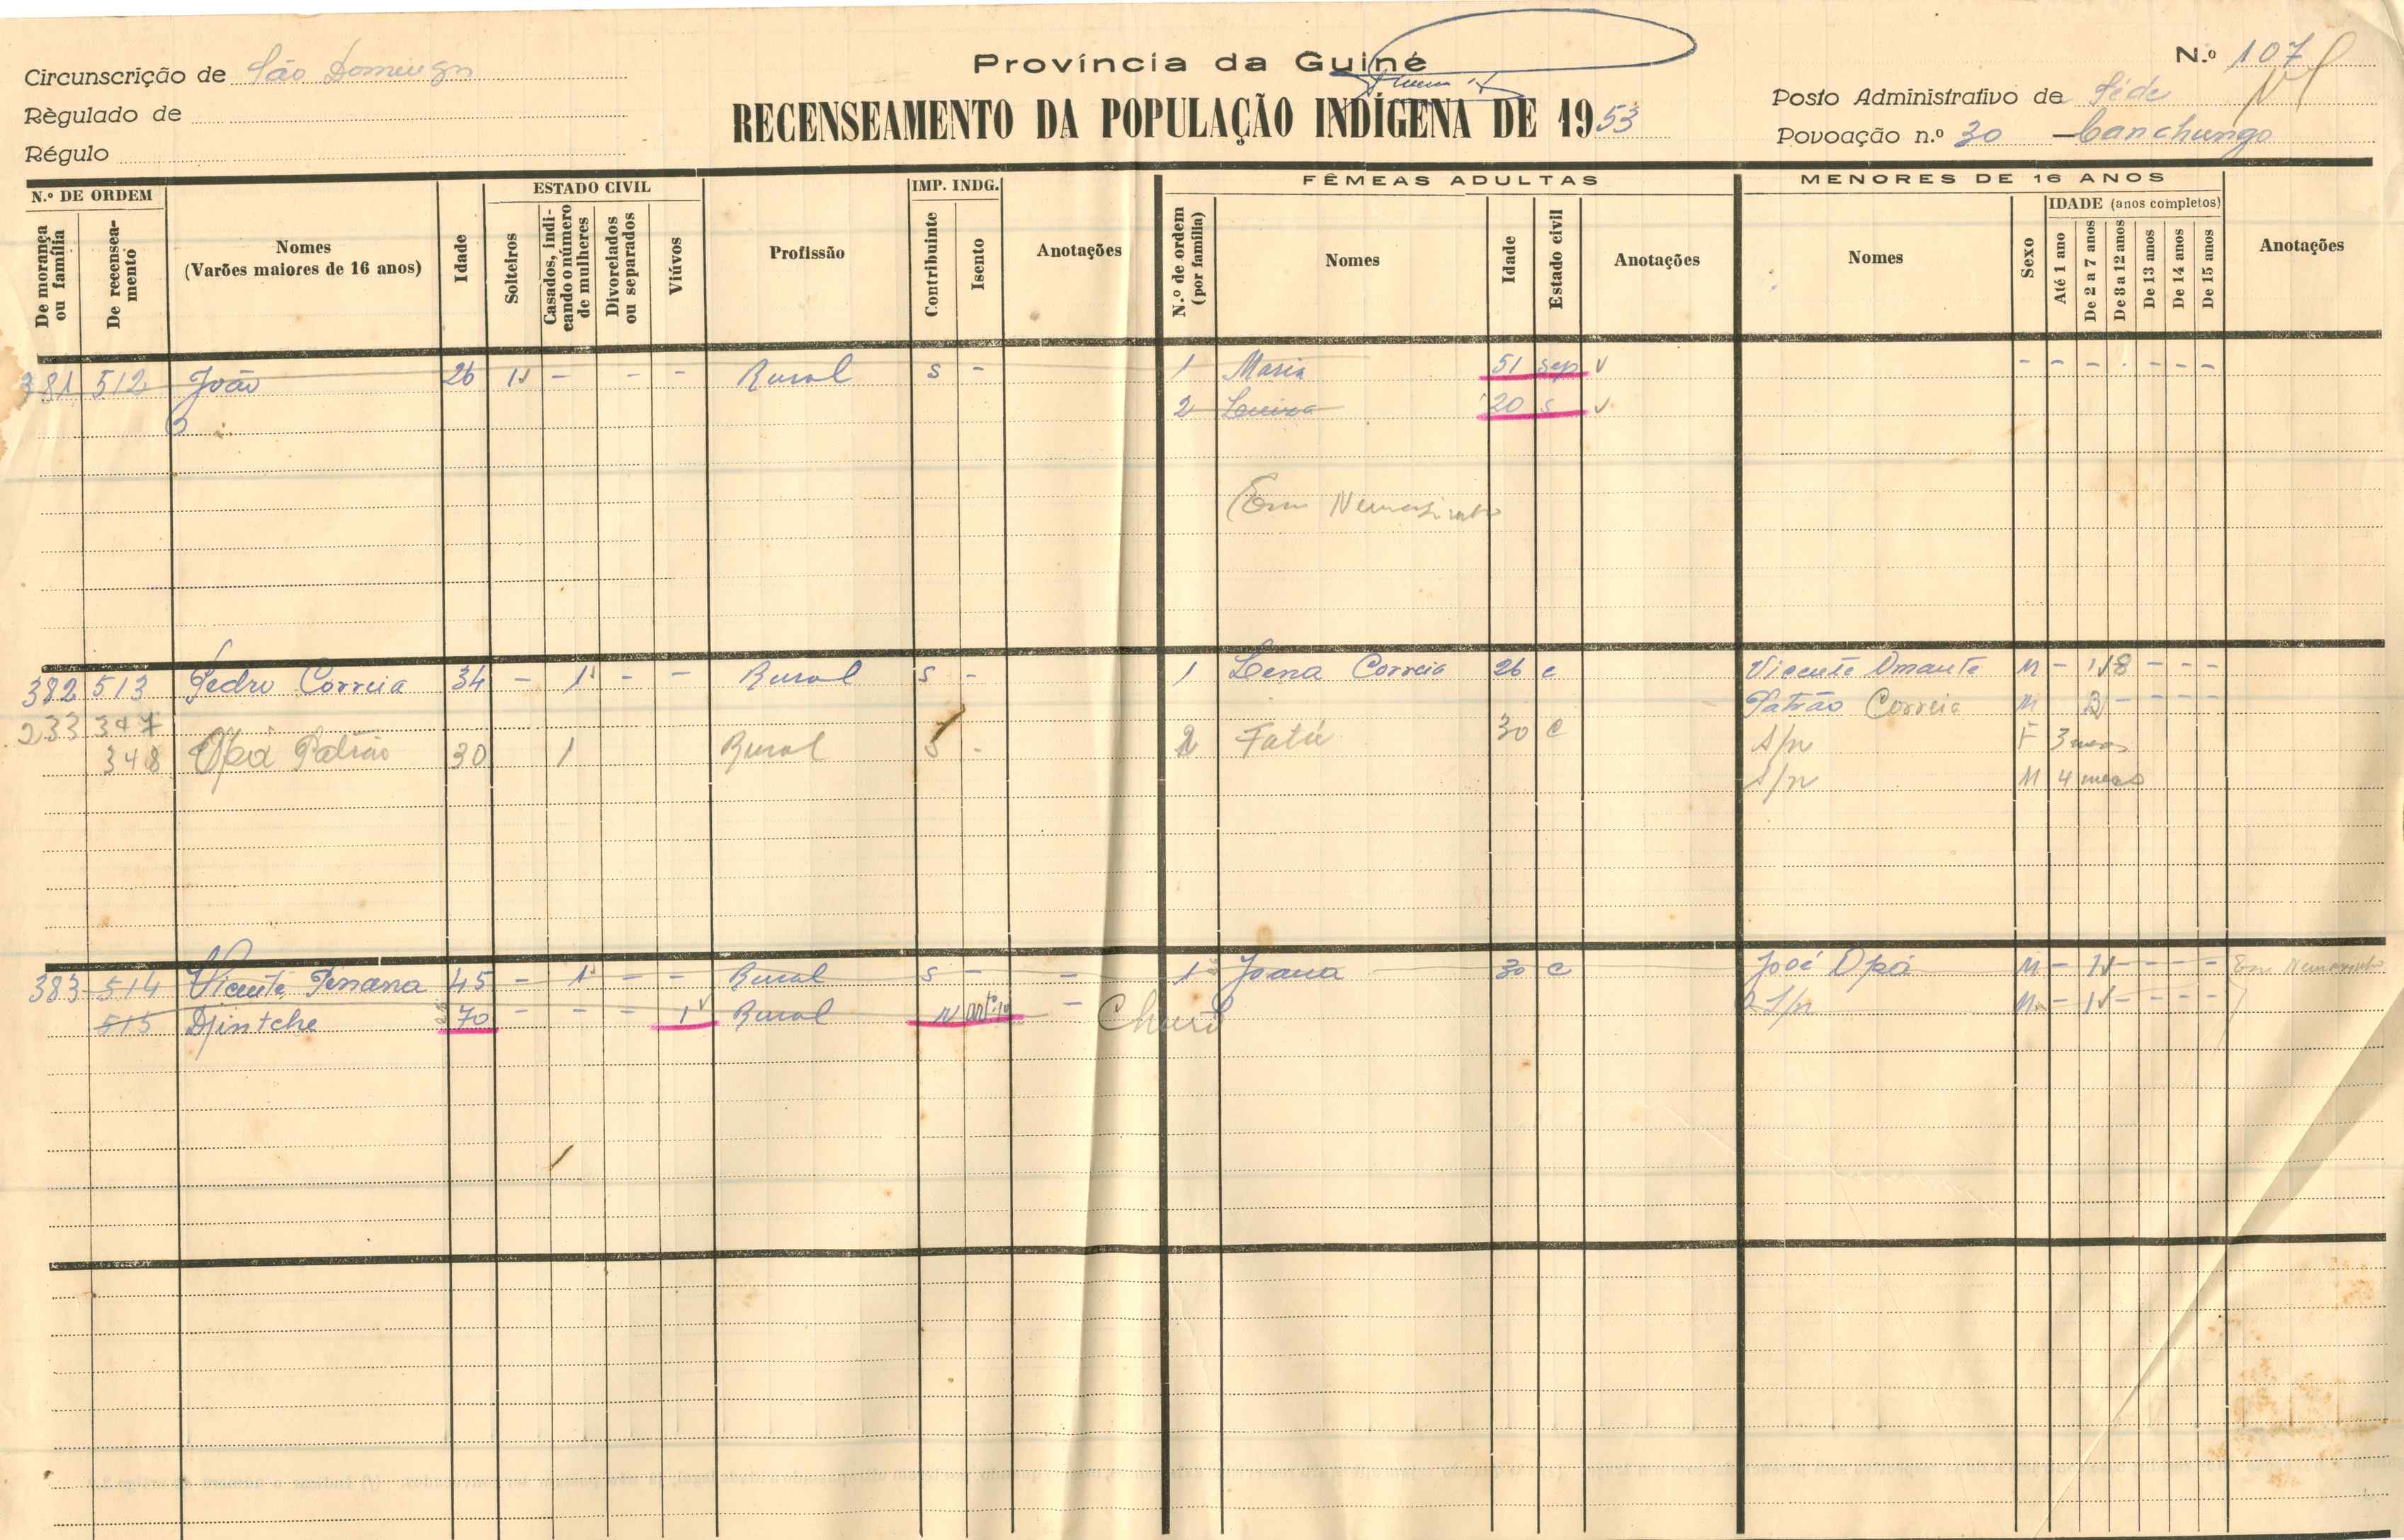 Província da Guiné
N.º 107
Circunscrição de São Domingos
Règulado de
Régulo
RECENSEAMENTO DA POPULAÇÃO INDÍGENA DE 1953
Posto Administrativo de Séde
Povoação n.º 30 — Canchungo
N.º DE ORDEM
De morança ou família
De recenseamento
Nomes
(Varões maiores de 16 anos)
Idade
ESTADO CIVIL
Solteiros
Casados, indicando o número de mulheres
Divorciados ou separados
Viúvos
Profissão
IMP. INDG.
Contribuinte
Isento
Anotações
FÊMEAS ADULTAS
N.º de ordem (por família)
Nomes
Idade
Estado civil
Anotações
MENORES DE 16 ANOS
Nomes
Sexo
IDADE (anos completos)
Até 1 ano
De 2 a 7 anos
De 8 a 12 anos
De 13 anos
De 14 anos
De 15 anos
Anotações
381 512 João 26 1 - - - Rural S - 1 Maria 51 sep - - - - - - -
2 Luiza 20 s
Em
382 513 Pedro Correia 34 - 1 - - Rural S - 1 Lena Correia 26 c Vicente Dmante M - 1 8 - - -
233 347 Patrão Correia M
348 Opá Patrão 30 1 Rural S - 2 Fatú 30 c S/n F 3 meses
S/n M 4 meses
383 514 Vicente 45 - 1 - - Rural S - - 1 Joana 30 c José Opá M - 1 - - - - Em
515 Djintche 70 - - - 1 Rural N artº - S/n M - 1 - - - -